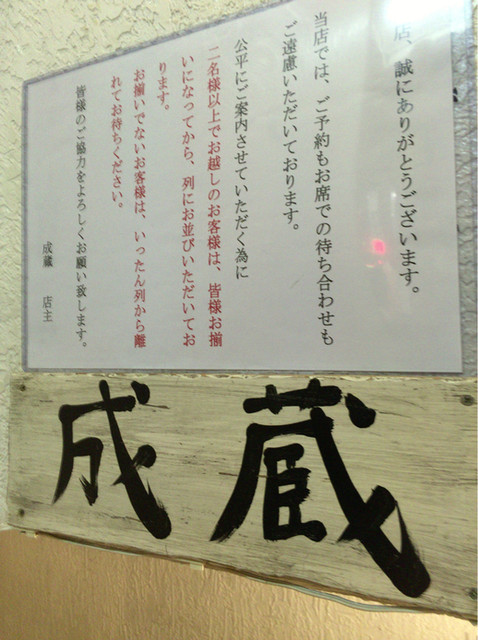 店、誠にありがとうございます。
当店では、ご予約もお席での待ち合わせも
ご遠慮いただいております。
公平にご案内させていただく為に
二名様以上でお越しのお客様は、皆様お揃
いになってから、列にお並びいただいてお
ります。
お揃いでないお客様は、いったん列から離
れてお待ちください。
皆様のご協力をよろしくお願い致します。
成蔵 店主
成蔵